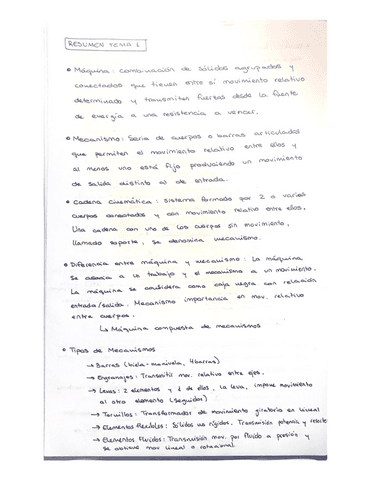 RESUMEN TEMA 1
• Máquina: Combinación de sólidos agrupados y
conectados que tienen entre sí movimiento relativo
determinado y transmiten fuerzas desde la fuente
de energía a una resistencia a vencer.
• Mecanismo: Serie de cuerpos o barras articulados
que permiten el movimiento relativo entre ellos y
al menos uno está fijo produciendo un movimiento
de salida distinto al de entrada.
• Cadena Cinemática: sistema formado por 2 o varios
cuerpos conectados y con movimiento relativo entre ellos.
Una cadena con uno de los cuerpos sin movimiento,
llamado soporte, se denomina mecanismo.
• Diferencia entre máquina y mecanismo: La máquina
se asocia a un trabajo y el mecanismo a un movimiento.
La máquina se considera como caja negra con relación
entrada/salida. Mecanismo importancia en mov. relativo
entre cuerpos.
↳ Máquina compuesta de mecanismos
• Tipos de Mecanismos
→ Barras (biela-manivela, 4 barras)
→ Engranajes: Transmitir mov. relativo entre ejes.
→ Levas: 2 elementos y 1 de ellos, la leva, impone movimiento
al otro elemento (seguidor)
→ Tornillos: Transformador de movimiento giratorio en lineal
→ Elementos flexibles: Sólidos no rígidos. Transmisión potencia y
→ Elementos Fluidos: Transmisión mov. por fluido a presión y
se obtiene mov lineal o rotacional.